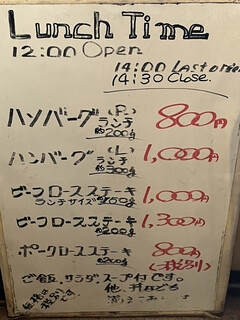 Lunch Time
12:00 Open
14:00 Last order
14:30 Close.
ハンバーグ (R) ランチ 約200g 800円
ハンバーグ (L) ランチ 約300g 1,000円
ビーフロースステーキ 1,000円
ランチサイズ
ビーフロースステーキ 1,300円
約200g
ポークロースステーキ 800円
約200g (税別)
ご飯,サラダ,スープ付です。
価格は税別です
他,丼もども